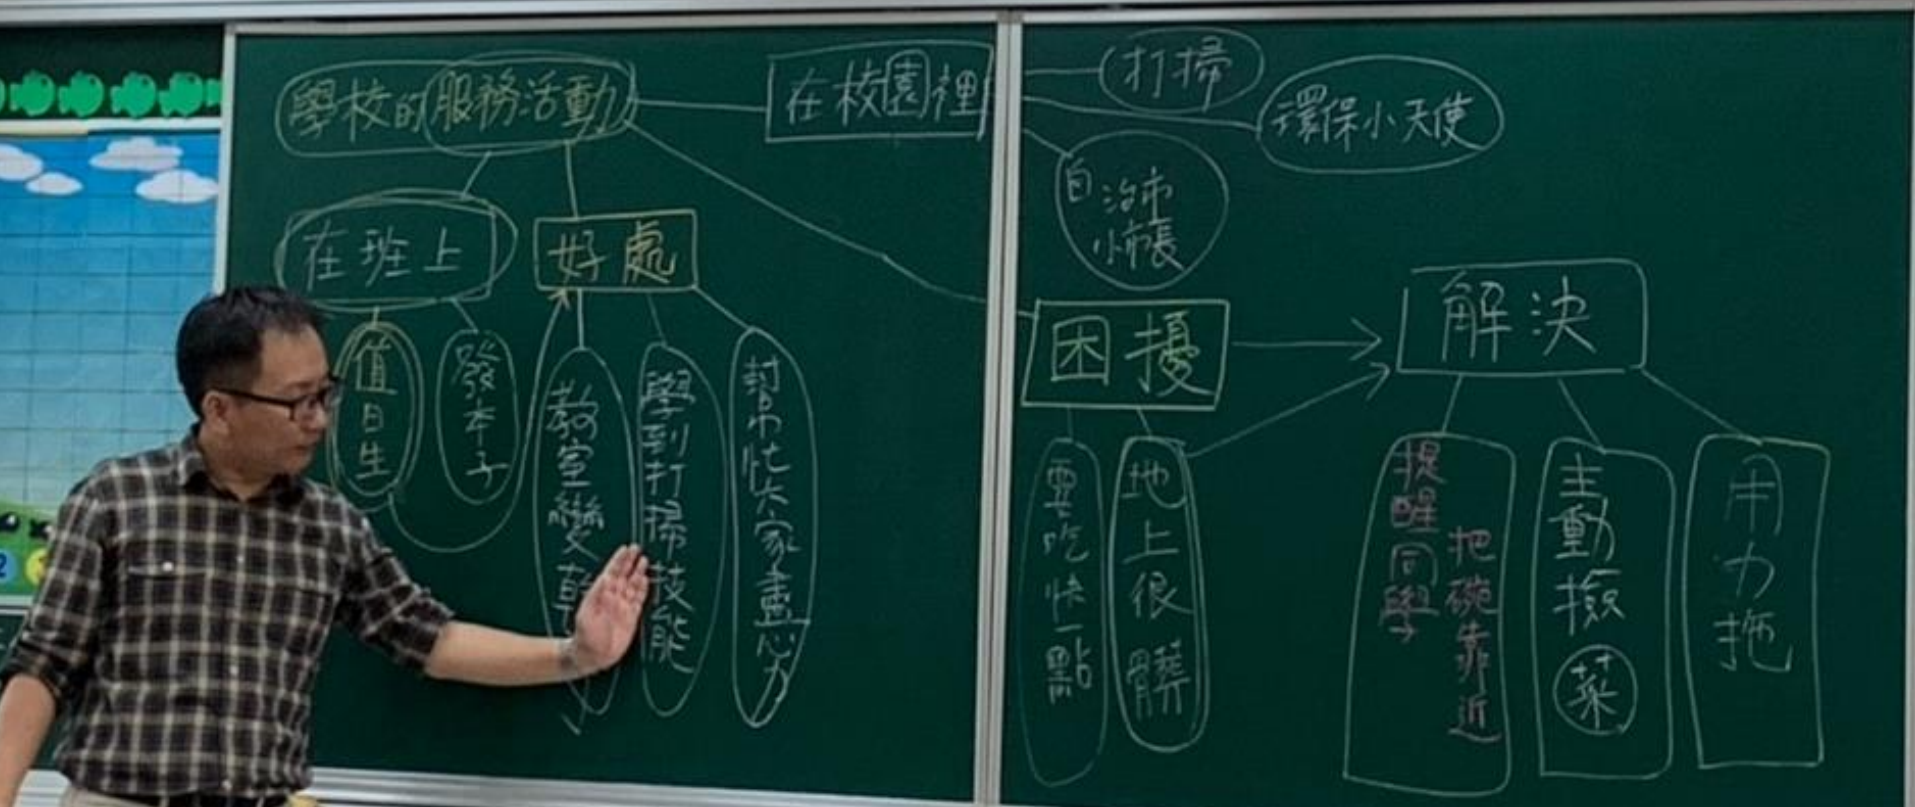 學校的服務活動
在校園裡
打掃
環保小天使
自治市
小市長
在班上
好處
困擾
解決
值日生
發本子
教室變乾
學到打掃技能
幫忙大家盡心力
要吃快一點
地上很髒
提醒同學
把碗靠近
主動撿菜
用力拖